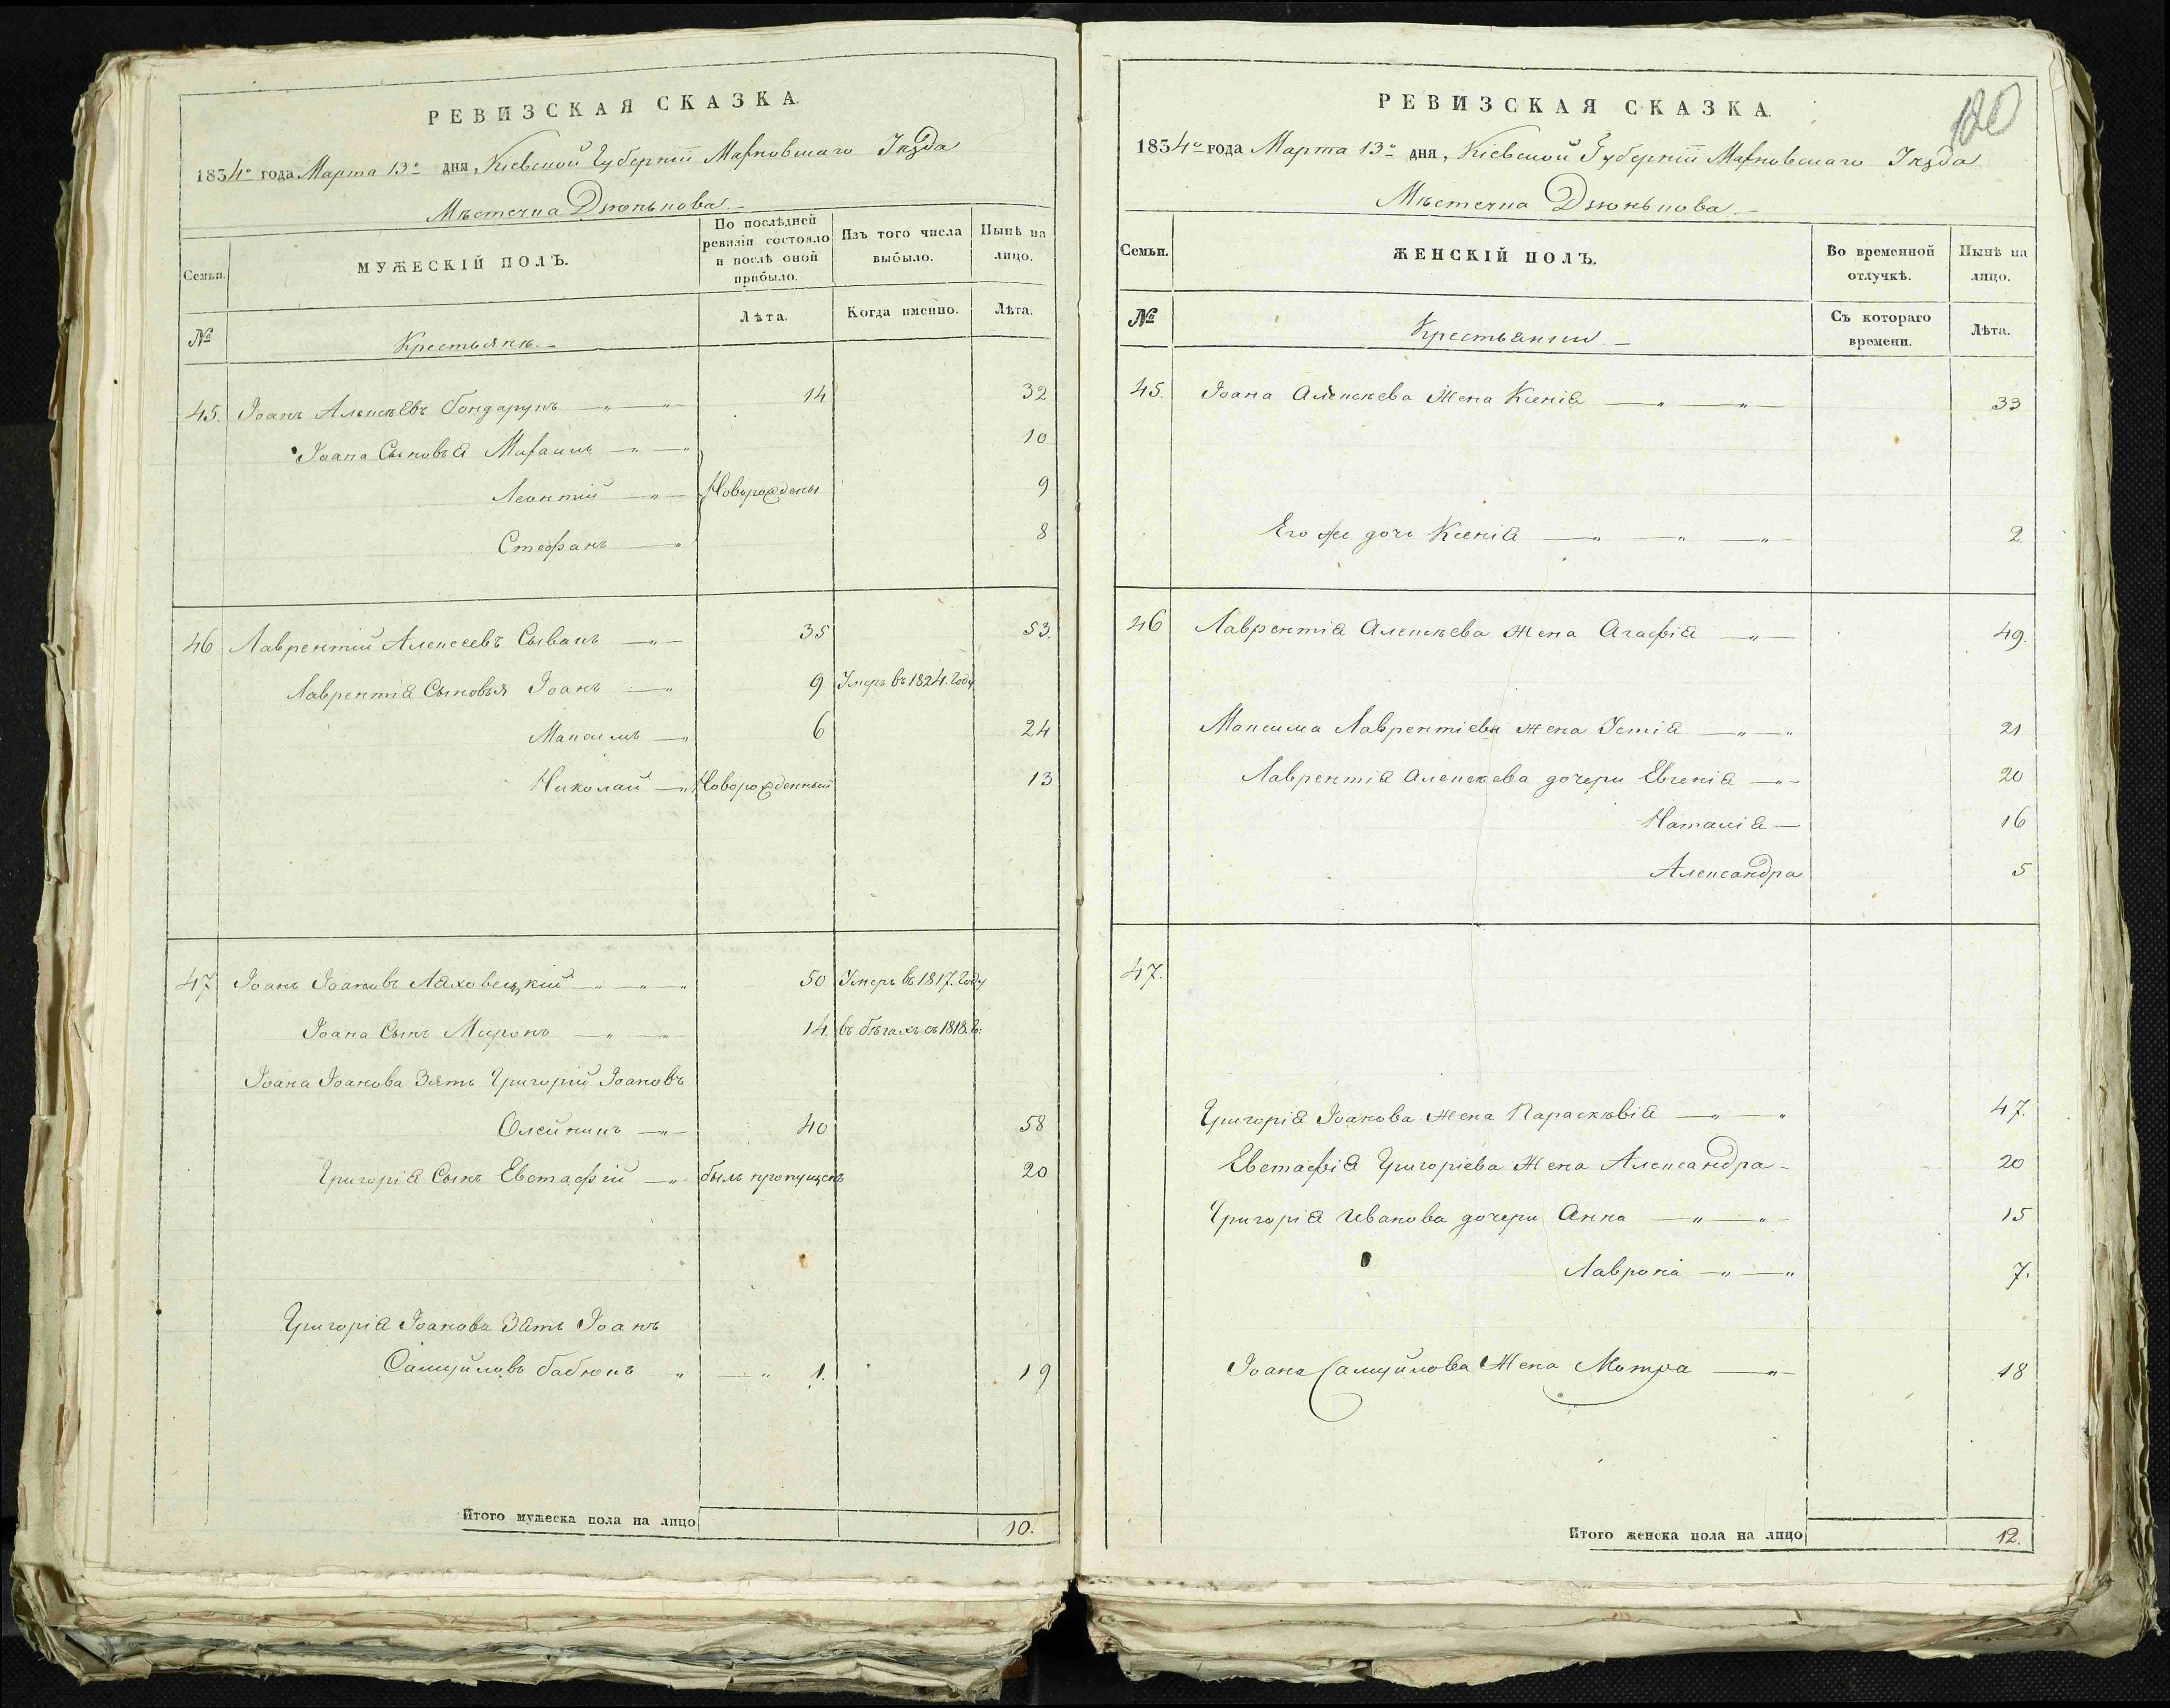 РЕВИЗСКАЯ СКАЗКА.
1834го года Марта 13го дня, Кіевской Губерніи Махновскаго Уѣзда
Мѣстечка Дзюнькова.
Семьи.
МУЖЕСКІЙ ПОЛЪ.
По послѣдней ревизіи состояло и послѣ оной прибыло.
Изъ того числа выбыло.
Нынѣ на лицо.
№
Крестьянѣ.
Лѣта.
Когда именно.
Лѣта.
45. Іоанъ Алексѣевъ Бондарукъ 14 32
Іоана Сыновья Михаилъ 10
Леонтій Новорождены 9
Стефанъ 8
46 Лаврентій Алексеевъ Сыванъ 35 53.
Лаврентія Сыновья Іоанъ 9 Умеръ въ 1824. Году
Максимъ 6 24
Николай Новорожденный 13
47 Іоанъ Іоановъ Ляховецкій 50 Умеръ въ 1817. Году
Іоана Сынъ Миронъ 14. въ бѣгахъ съ 1818. г:
Іоана Іоанова Зять Григорій Іоановъ
Олейникъ 40 58
Григорія Сынъ Евстафій былъ пропущенъ 20
Григорія Іоанова Зять Іоанъ
Самуйловъ Бабюкъ 1. 19
Итого мужеска пола на лицо 10.
120
РЕВИЗСКАЯ СКАЗКА.
1834го года Марта 13го дня, Кіевской Губерніи Махновскаго Уѣзда
Мѣстечка Дзюнькова.
Семьи.
ЖЕНСКІЙ ПОЛЪ.
Во временной отлучкѣ.
Нынѣ на лицо.
№
Крестьянки.
Съ котораго времени.
Лѣта.
45. Іоана Алексѣева Жена Ксенія 33
Его же дочь Ксенія 2
46 Лаврентія Алексѣева жена Агафія 49.
Максима Лаврентіева жена Устія 21
Лаврентія Алексѣева дочери Евгенія 20
Наталія 16
Александра 5
47.
Григорія Іоанова жена Параскѣвія 47.
Евстафія Григоріева Жена Александра 20
Григорія Иванова дочери Анна 15
Лавронія 7.
Іоана Самуйлова Жена Мотра 18
Итого женска пола на лицо 12.